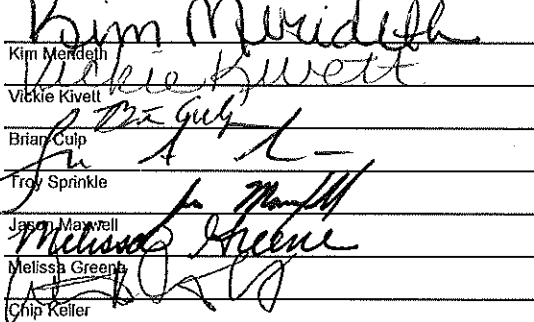 Kim Merideth
Kim Merideth
Vickie Kivett
Vickie Kivett
Brian Culp
Troy Sprinkle
Jason Maxwell
Melissa Greene
Melissa Greene
Chip Keller